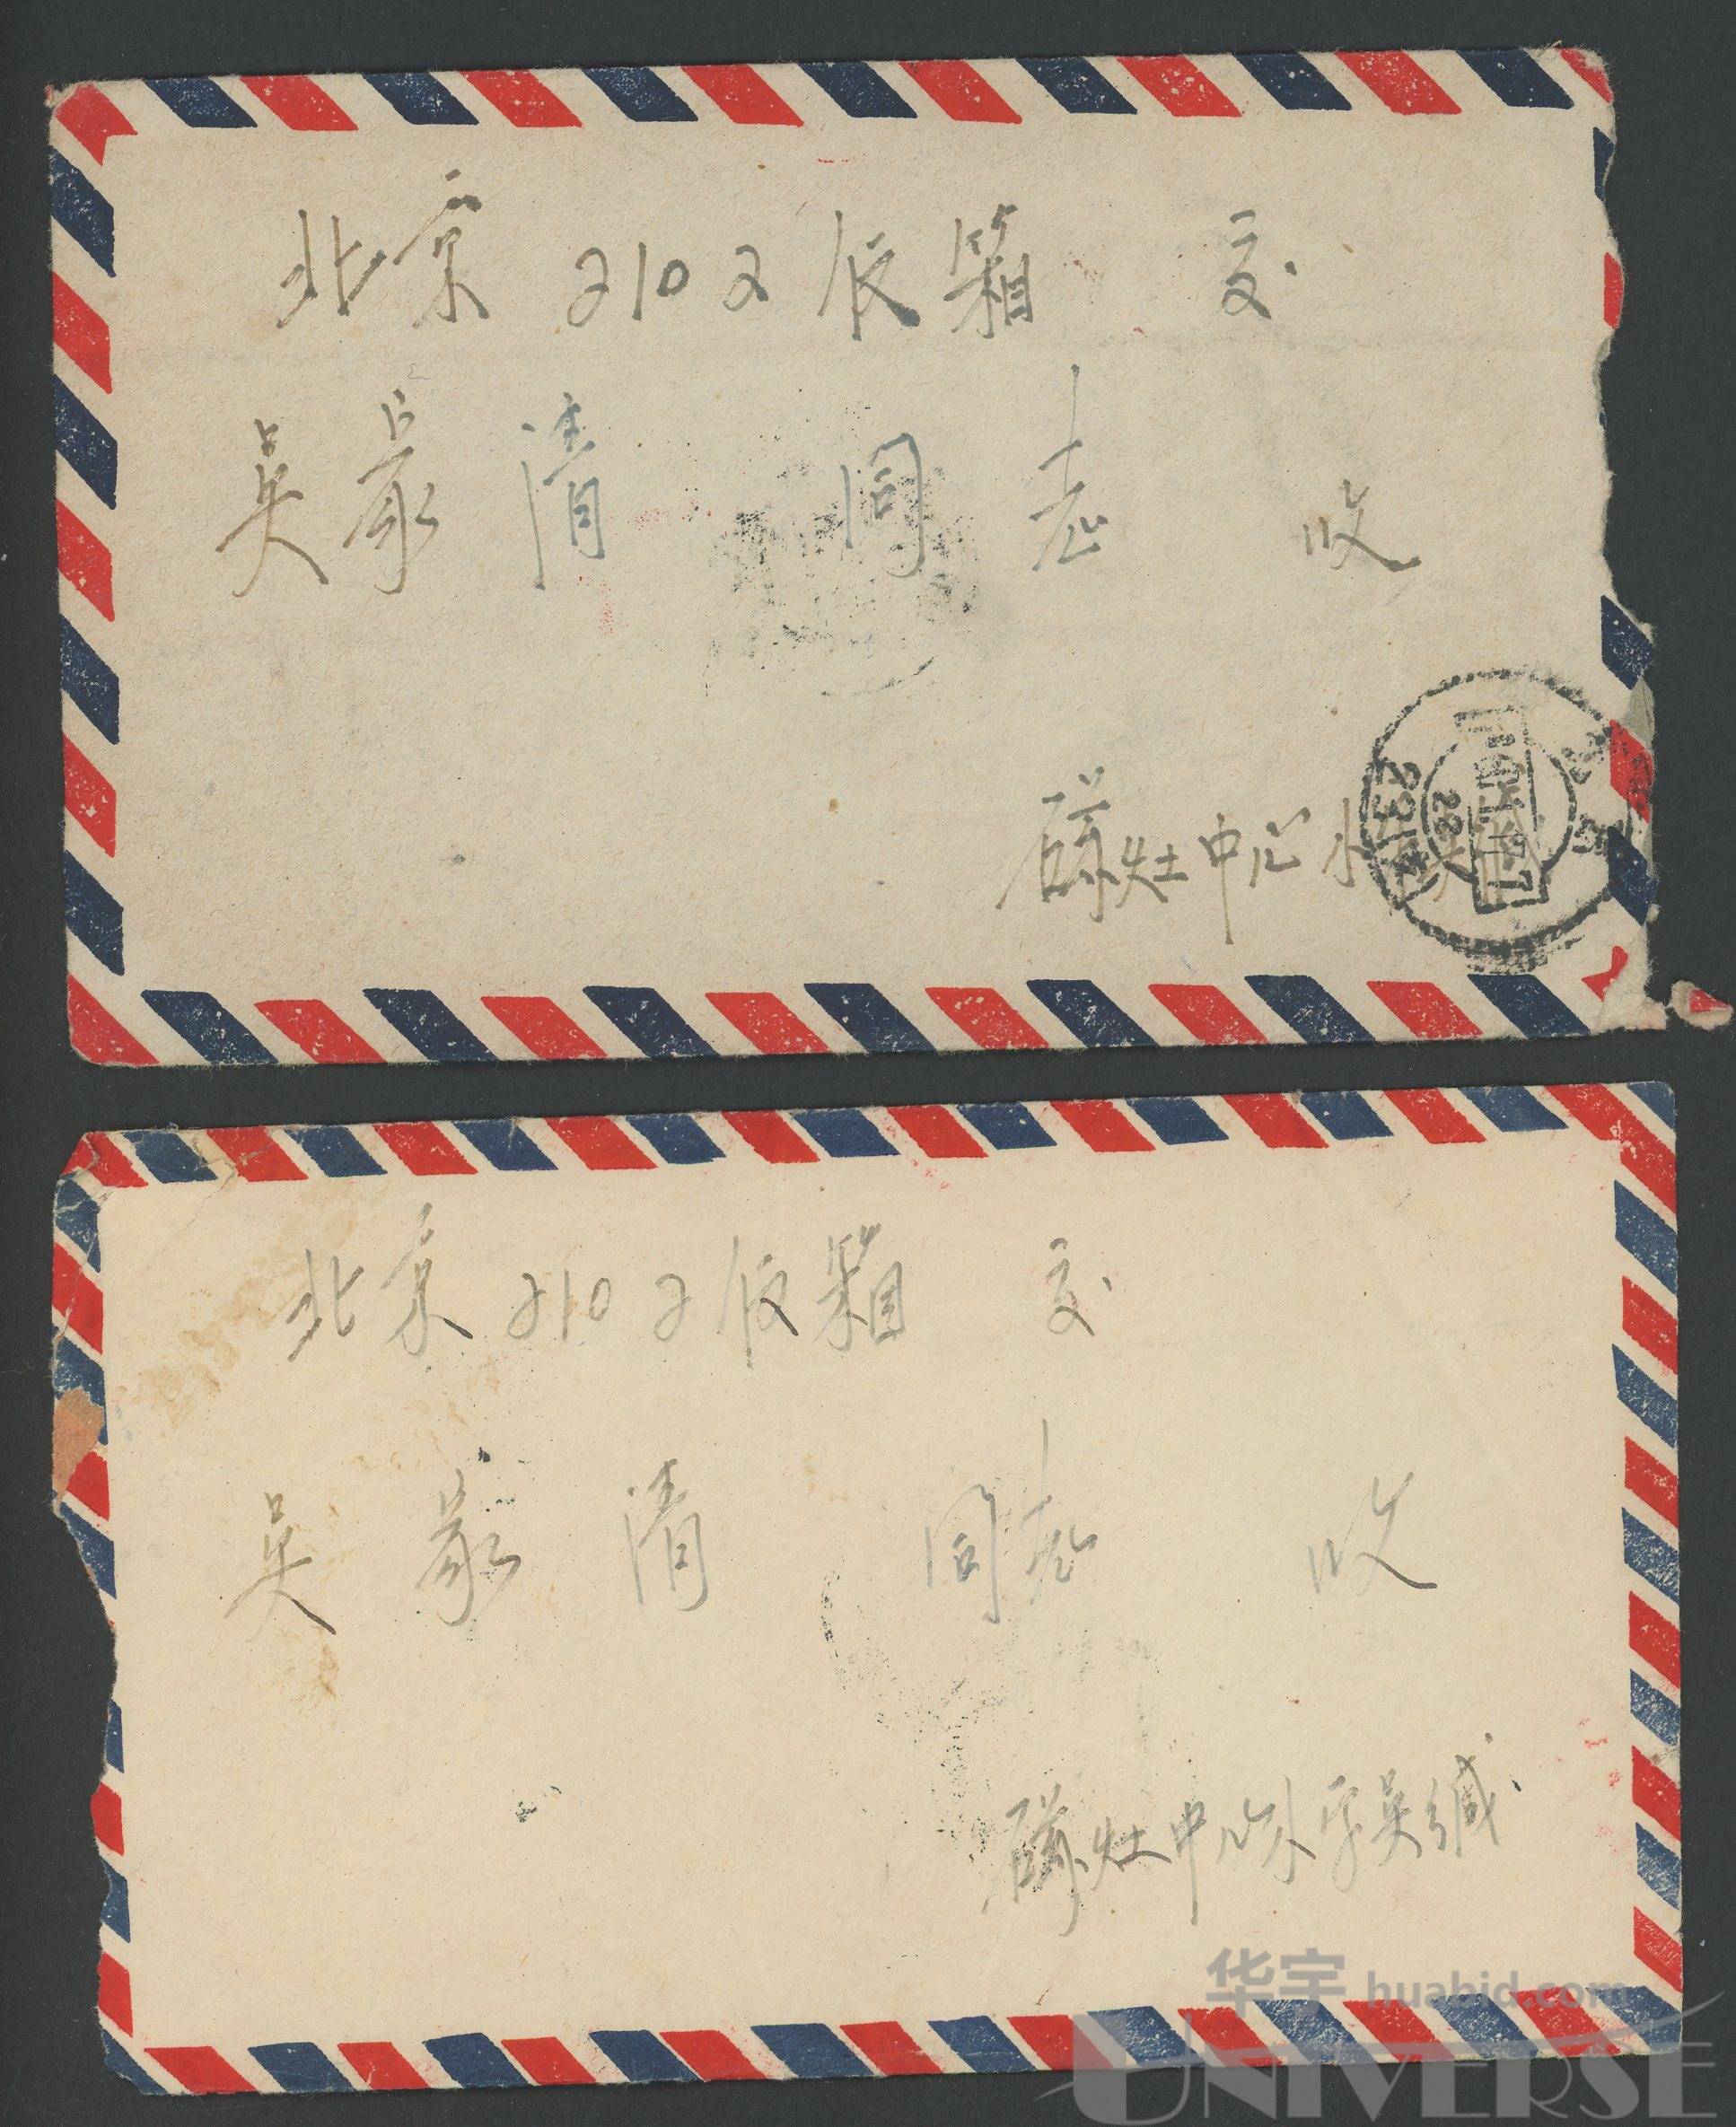 北京 2102 信箱 交
吴家清 同志 收
磁灶中心小学吴缄
北京
22
北京 2102 信箱 交
吴家清 同志 收
磁灶中心小学吴缄
华宇 huabid.com
UNIVERSE